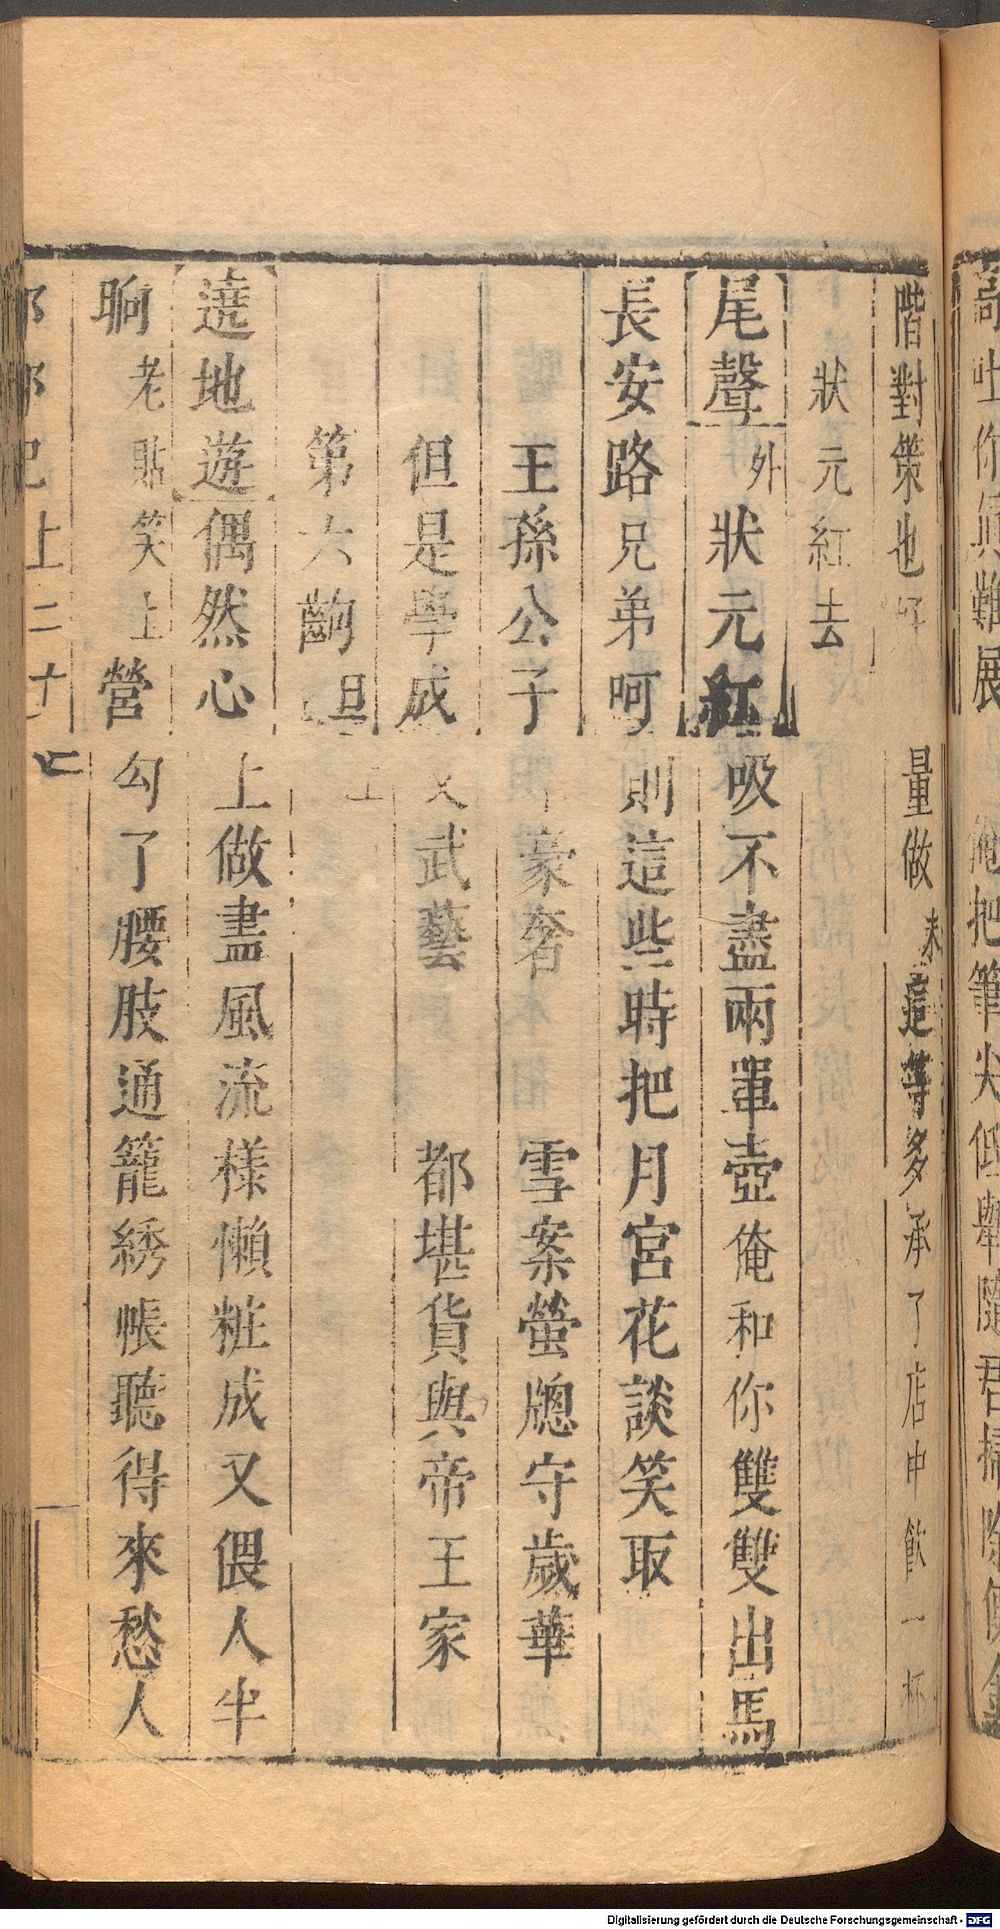 奇
你真難展　俺把筆尖低舉隨君掃
階對策也　量做末這等多承了店中飲一杯
狀元紅去
尾聲外狀元紅吸不盡兩單壺俺和你雙雙出馬
長安路兄弟呵則這些時把月宮花談笑取
王孫公子　豪奢　雪案螢牕守歲華
但是學成文武藝　都堪貨與帝王家
第六齣　旦上
遶地遊偶然心上做盡風流樣懶粧成又偎人半
晌老貼笑上營勾了腰肢通籠綉帳聽得來愁人
記上二十七
Digitalisierung gefördert durch die Deutsche Forschungsgemeinschaft - DFG